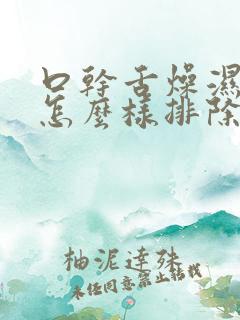 口幹舌燥濕
怎麼樣排除
柚泥達殊
未经同意禁止转载